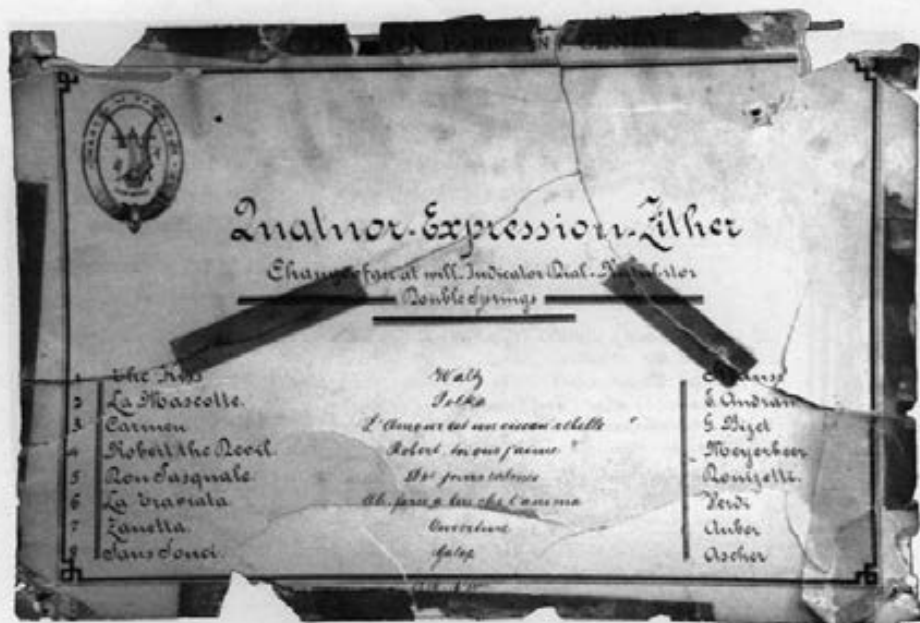 GENEVE
Quatuor-Expression-Zither
Change of air at will. Indicator Dial
Double Springs
1 The Kiss Waltz
2 La Mascotte. Polka E. Audran
3 Carmen L'Amour est un oiseau rebelle " G. Bizet
4 Robert the Devil. Robert toi que j'aime " Meyerbeer
5 Don Pasquale. Donizetti.
6 La Traviata Ah. fors'è lui che l'anima Verdi
7 Zanetta. Ouverture Auber
8 Sans Souci. Galop Ascher